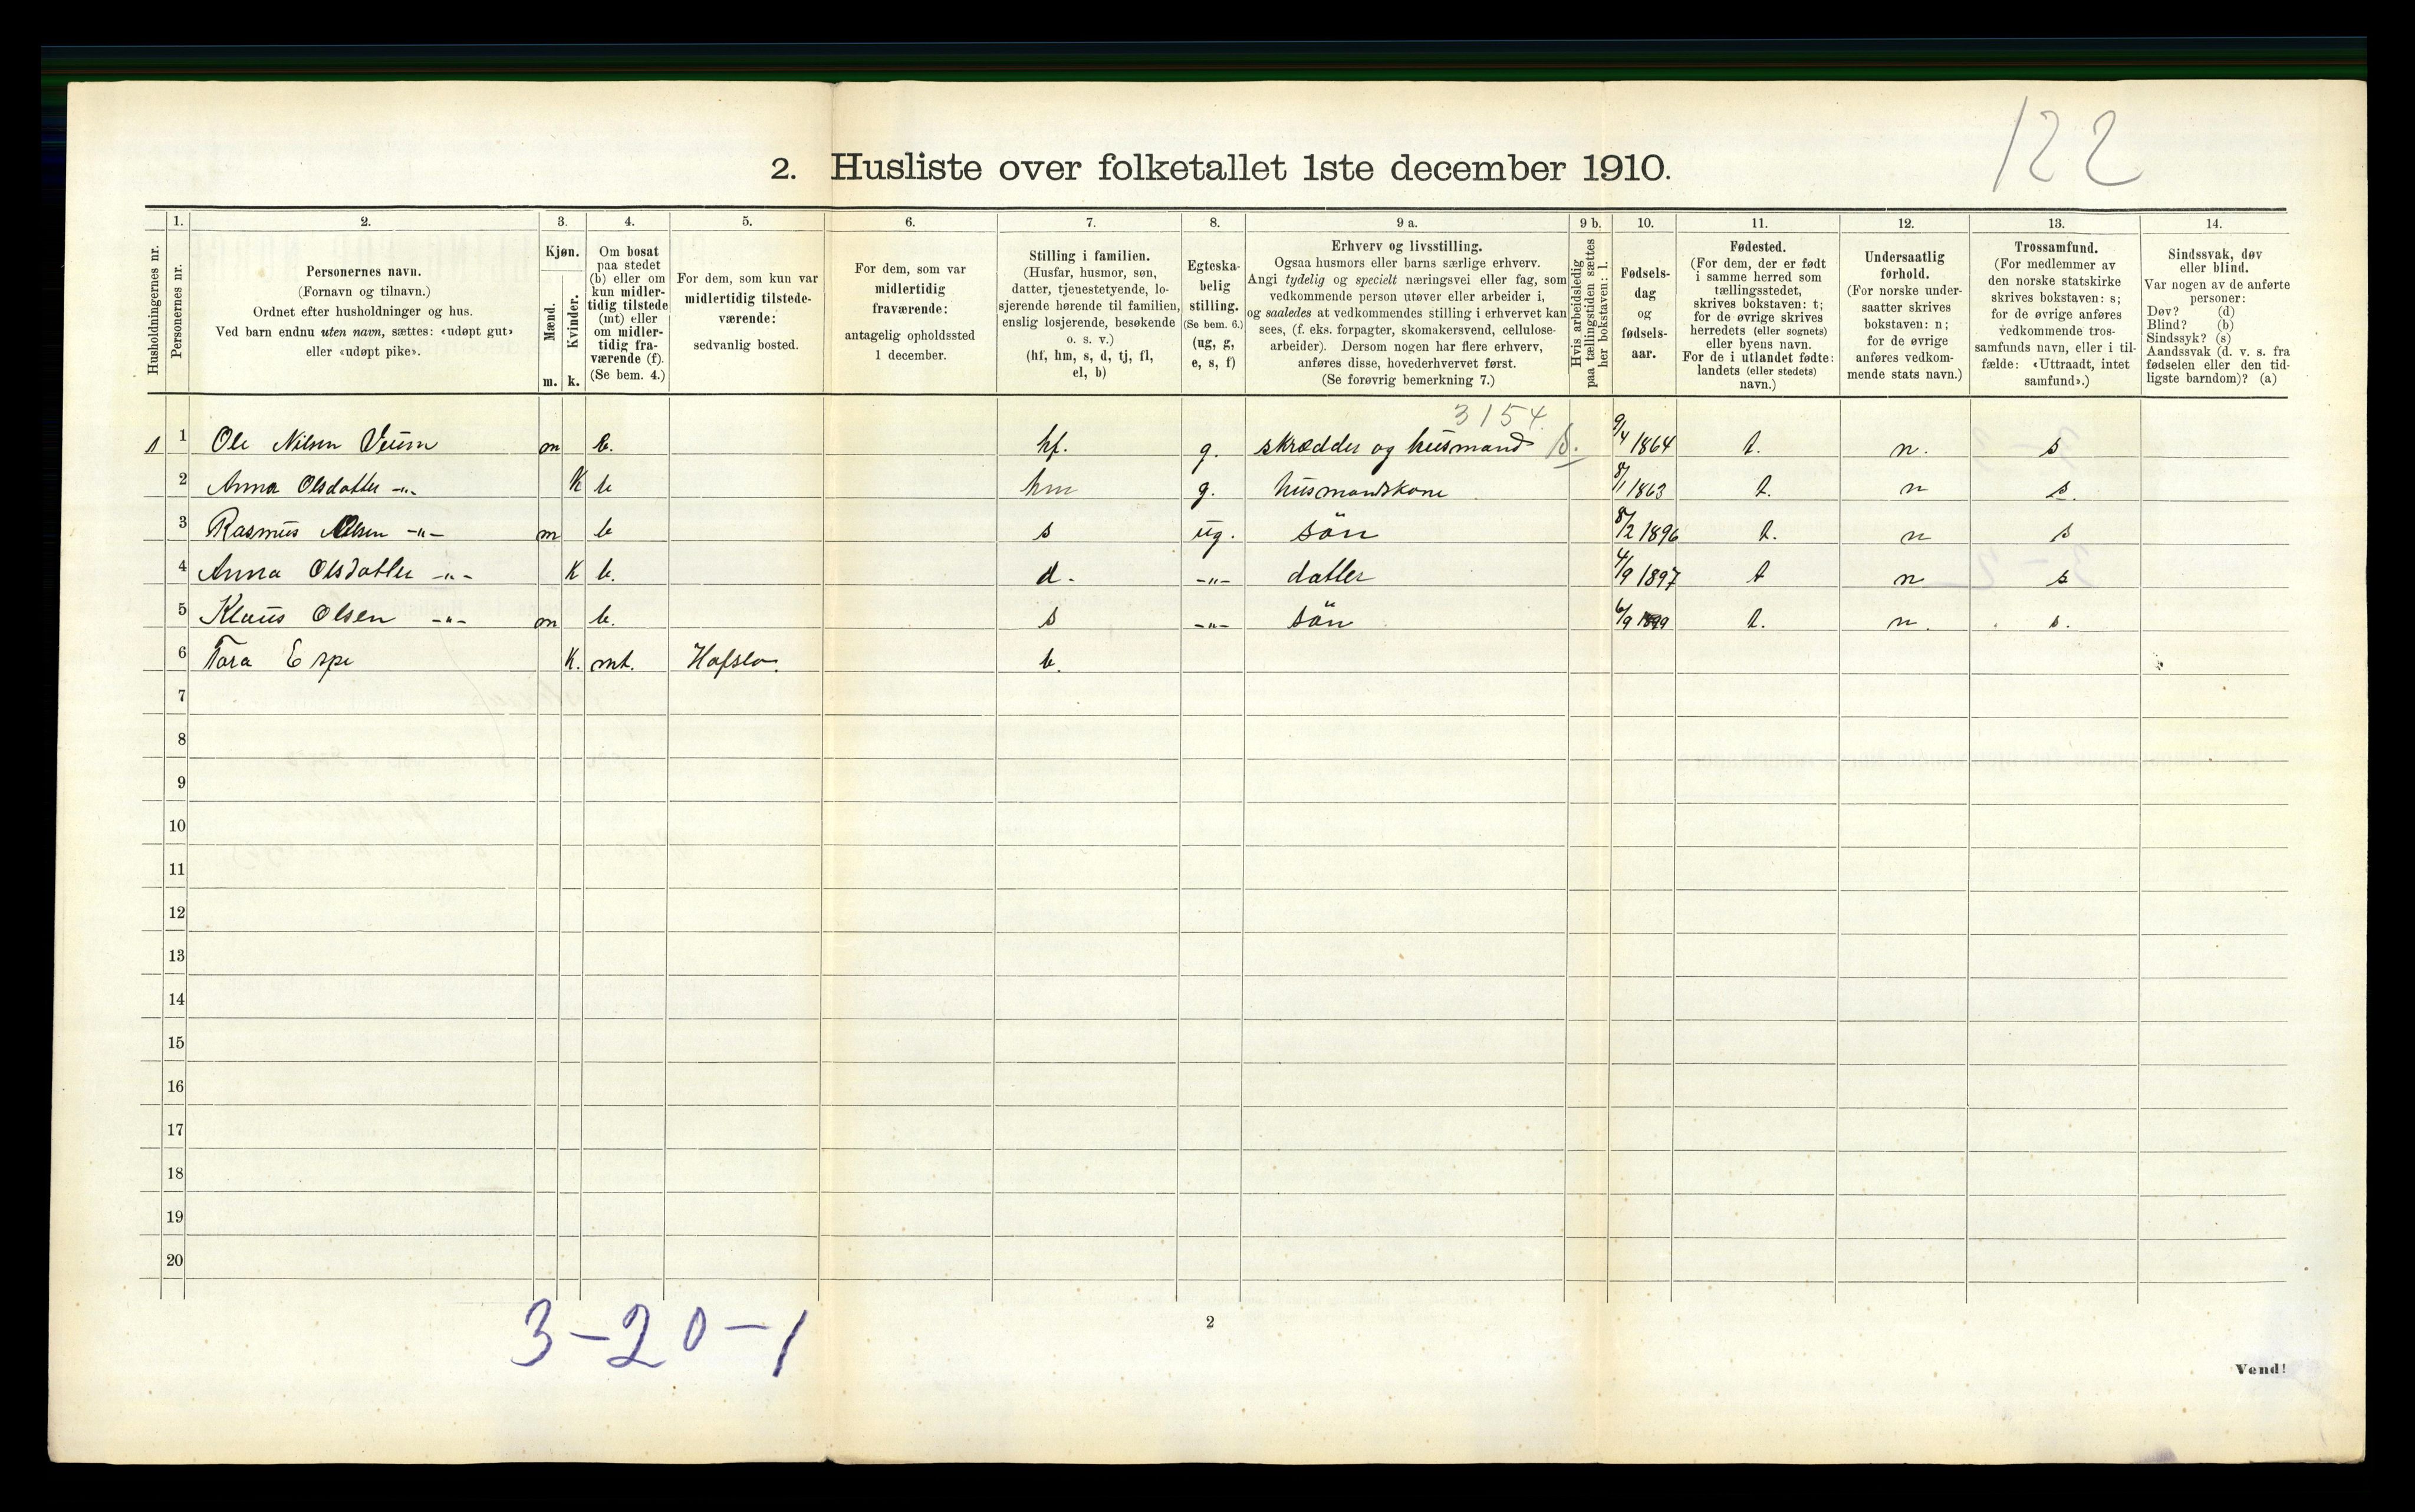 122
2. Husliste over folketallet 1ste december 1910.
Husholdningernes nr.
1.
Personernes nr.
2.
Personernes navn.
(Fornavn og tilnavn.)
Ordnet efter husholdninger og hus.
Ved barn endnu uten navn, sættes: «udøpt gut»
eller «udøpt pike».
3.
Kjøn.
Mænd.
Kvinder.
m. k.
4.
Om bosat
paa stedet
(b) eller om
kun midler-
tidig tilstede
(mt) eller
om midler-
tidig fra-
værende (f).
(Se bem. 4.)
5.
For dem, som kun var
midlertidig tilstede-
værende:
sedvanlig bosted.
6.
For dem, som var
midlertidig
fraværende:
antagelig opholdssted
1 december.
7.
Stilling i familien.
(Husfar, husmor, søn,
datter, tjenestetyende, lo-
sjerende hørende til familien,
enslig losjerende, besøkende
o. s. v.)
(hf, hm, s, d, tj, fl,
el, b)
8.
Egteska-
belig
stilling.
(Se bem. 6.)
(ug, g,
e, s, f)
9 a.
Erhverv og livsstilling.
Ogsaa husmors eller barns særlige erhverv.
Angi tydelig og specielt næringsvei eller fag, som
vedkommende person utøver eller arbeider i,
og saaledes at vedkommendes stilling i erhvervet kan
sees, (f. eks. forpagter, skomakersvend, cellulose-
arbeider). Dersom nogen har flere erhverv,
anføres disse, hovederhvervet først.
(Se forøvrig bemerkning 7.)
9 b.
Hvis arbeidsledig
paa tællingstiden sættes
her bokstaven: l.
10.
Fødsels-
dag
og
fødsels-
aar.
11.
Fødested.
(For dem, der er født
i samme herred som
tællingsstedet,
skrives bokstaven: t;
for de øvrige skrives
herredets (eller sognets)
eller byens navn.
For de i utlandet fødte:
landets (eller stedets)
navn.)
12.
Undersaatlig
forhold.
(For norske under-
saatter skrives
bokstaven: n;
for de øvrige
anføres vedkom-
mende stats navn.)
13.
Trossamfund.
(For medlemmer av
den norske statskirke
skrives bokstaven: s;
for de øvrige anføres
vedkommende tros-
samfunds navn, eller i til-
fælde: «Uttraadt, intet
samfund».)
14.
Sindssvak, døv
eller blind.
Var nogen av de anførte
personer:
Døv? (d)
Blind? (b)
Sindssyk? (s)
Aandssvak (d. v. s. fra
fødselen eller den tid-
ligste barndom)? (a)
3154.
1 1 Ole Nilsen Veum m b. hf. g. skrædder og husmand 9/4 1864 t. n. s
2 Anna Olsdatter -"- K b hm g. husmandskone 8/1 1863 t. n s.
3 Rasmus Olsen -"- m b s ug. sön 8/2 1896 t. n s
4 Anna Olsdatter -"- K b. d. -"- datter 4/9 1897 t n s
5 Klaus Olsen -"- m b. s -"- sön 6/9 1899 t. n. s.
6 Tora Espe K. mt. Hafslo. b.
7
8
9
10
11
12
13
14
15
16
17
18
19
20
3-20-1
2
Vend!